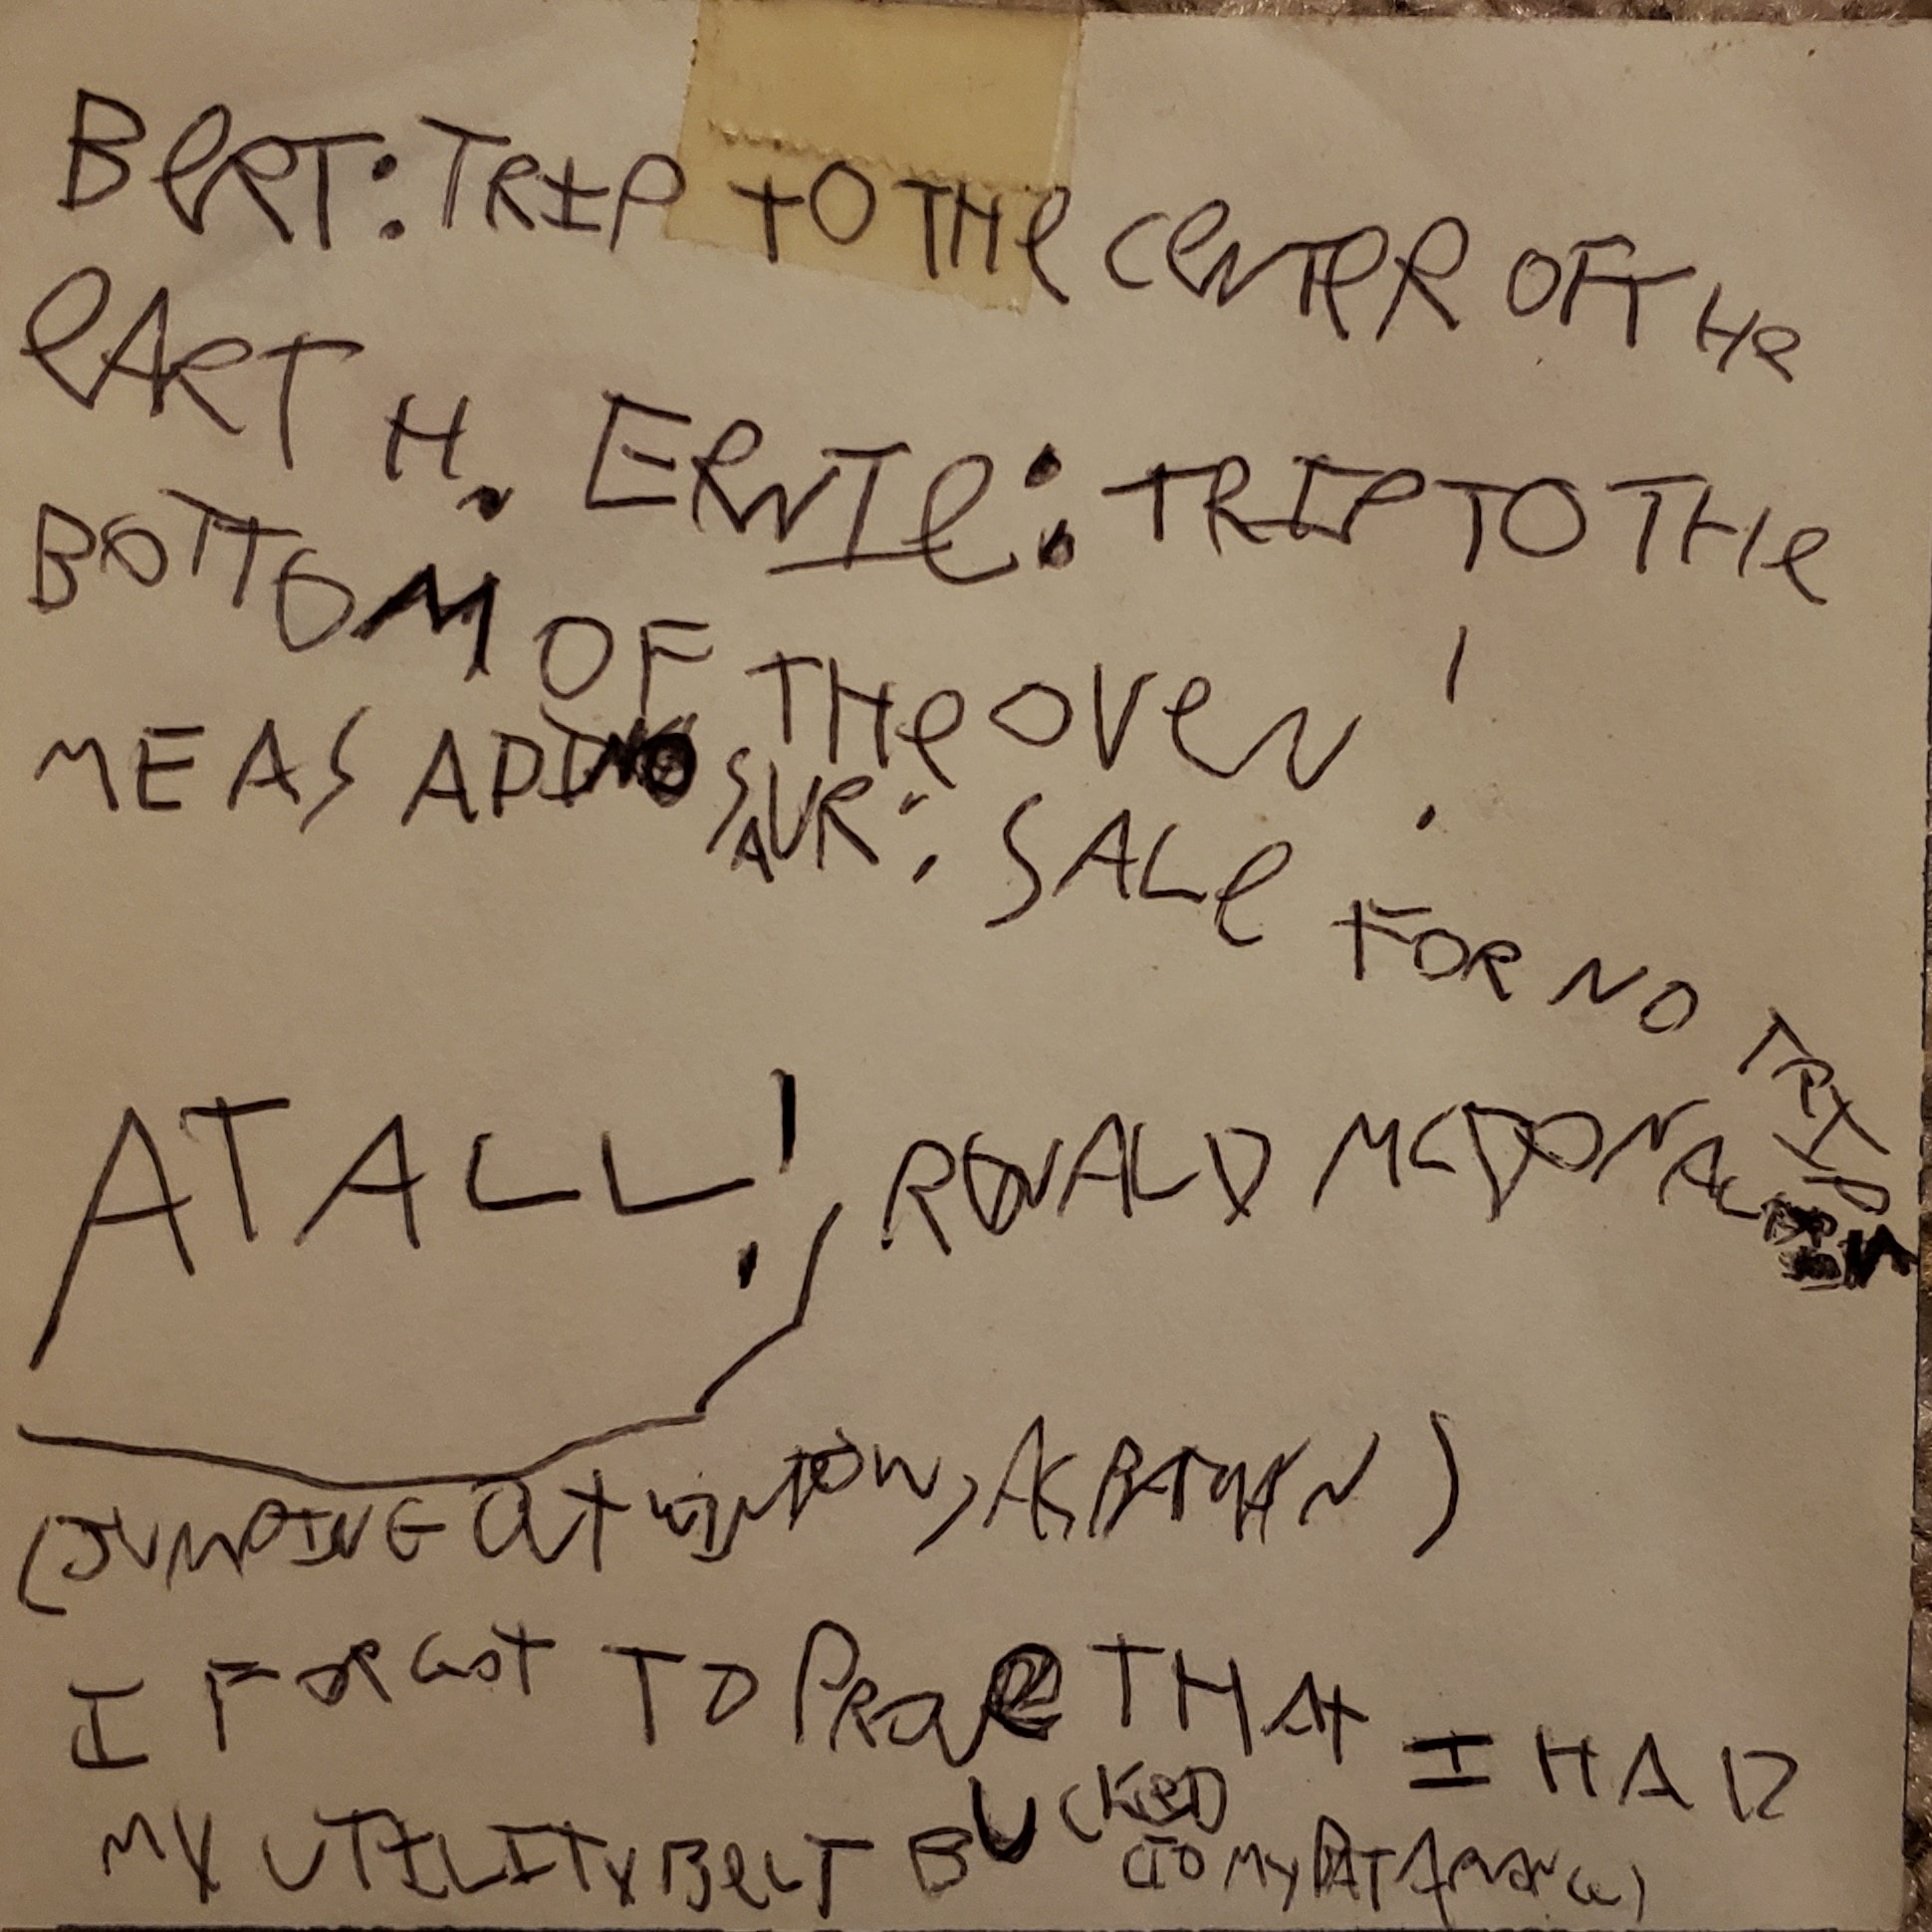 BeRT: TRIP TO THe CeNTeR OF THe
eARTH. ERNIe: TRIP TO THe
BOTTOM OF THe OVeN!
ME AS A DINOSAUR: SALe FOR NO TRIP
AT ALL! RONALD MCDONALD
(JUMPING OUT WINDOW, AS BATMAN)
I FORGOT TO PROVe THAT I HAD
MY UTILITY BeLT BUCKeD
(TO MY